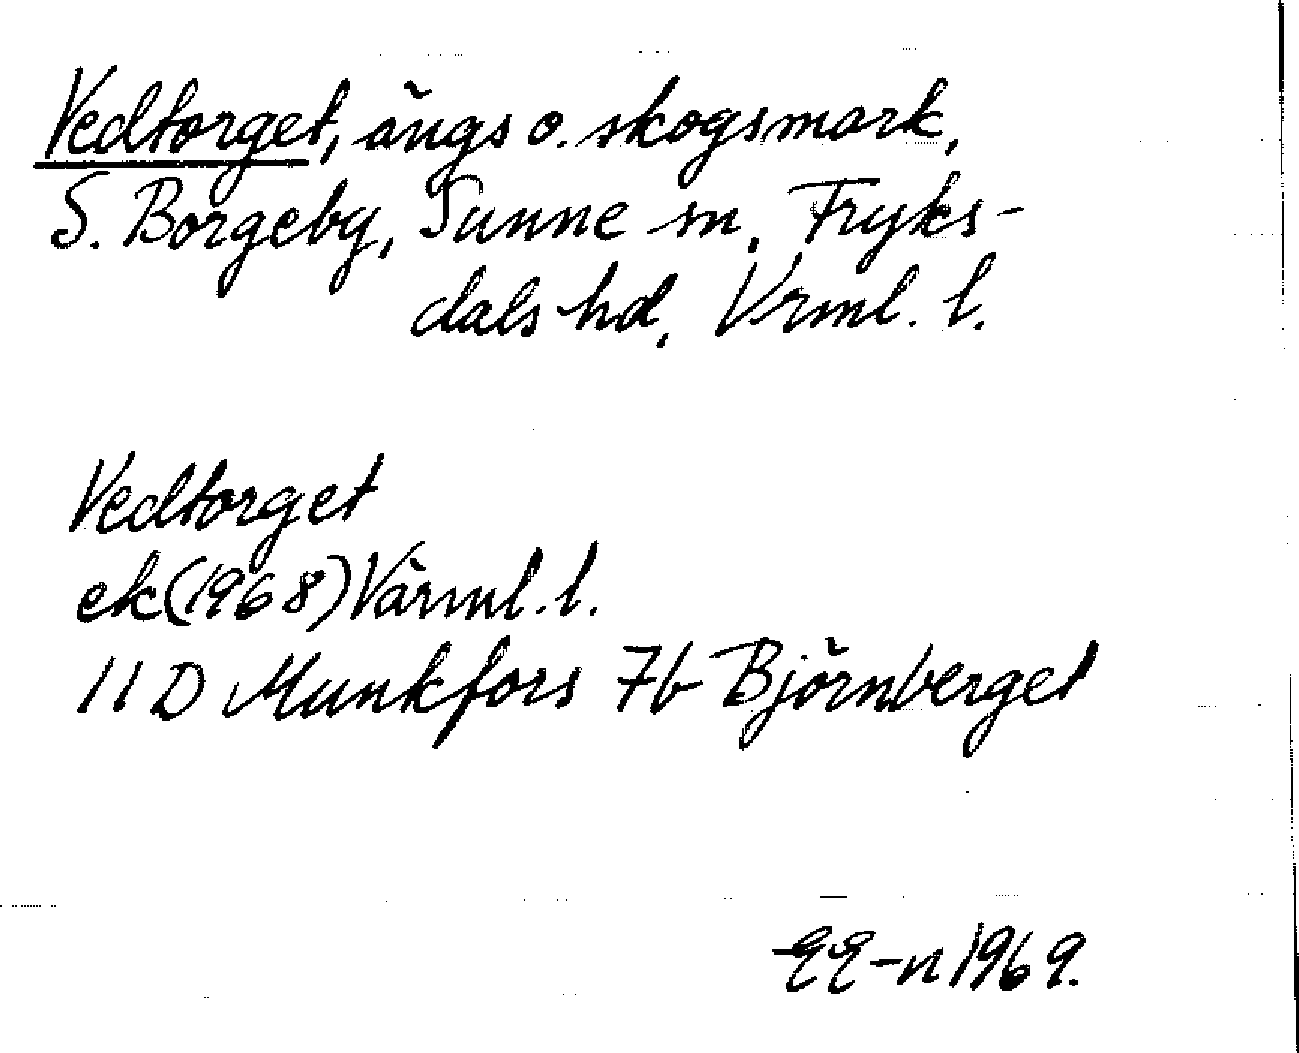 Vedtorget, ängs o. skogsmark,
S. Borgeby, Sunne sn, Fryks-
dals hd, Vrml. l.
Vedtorget
ek (1968) Värml. l.
11 D Munkfors 7b Björnberget
EE-n 1969.